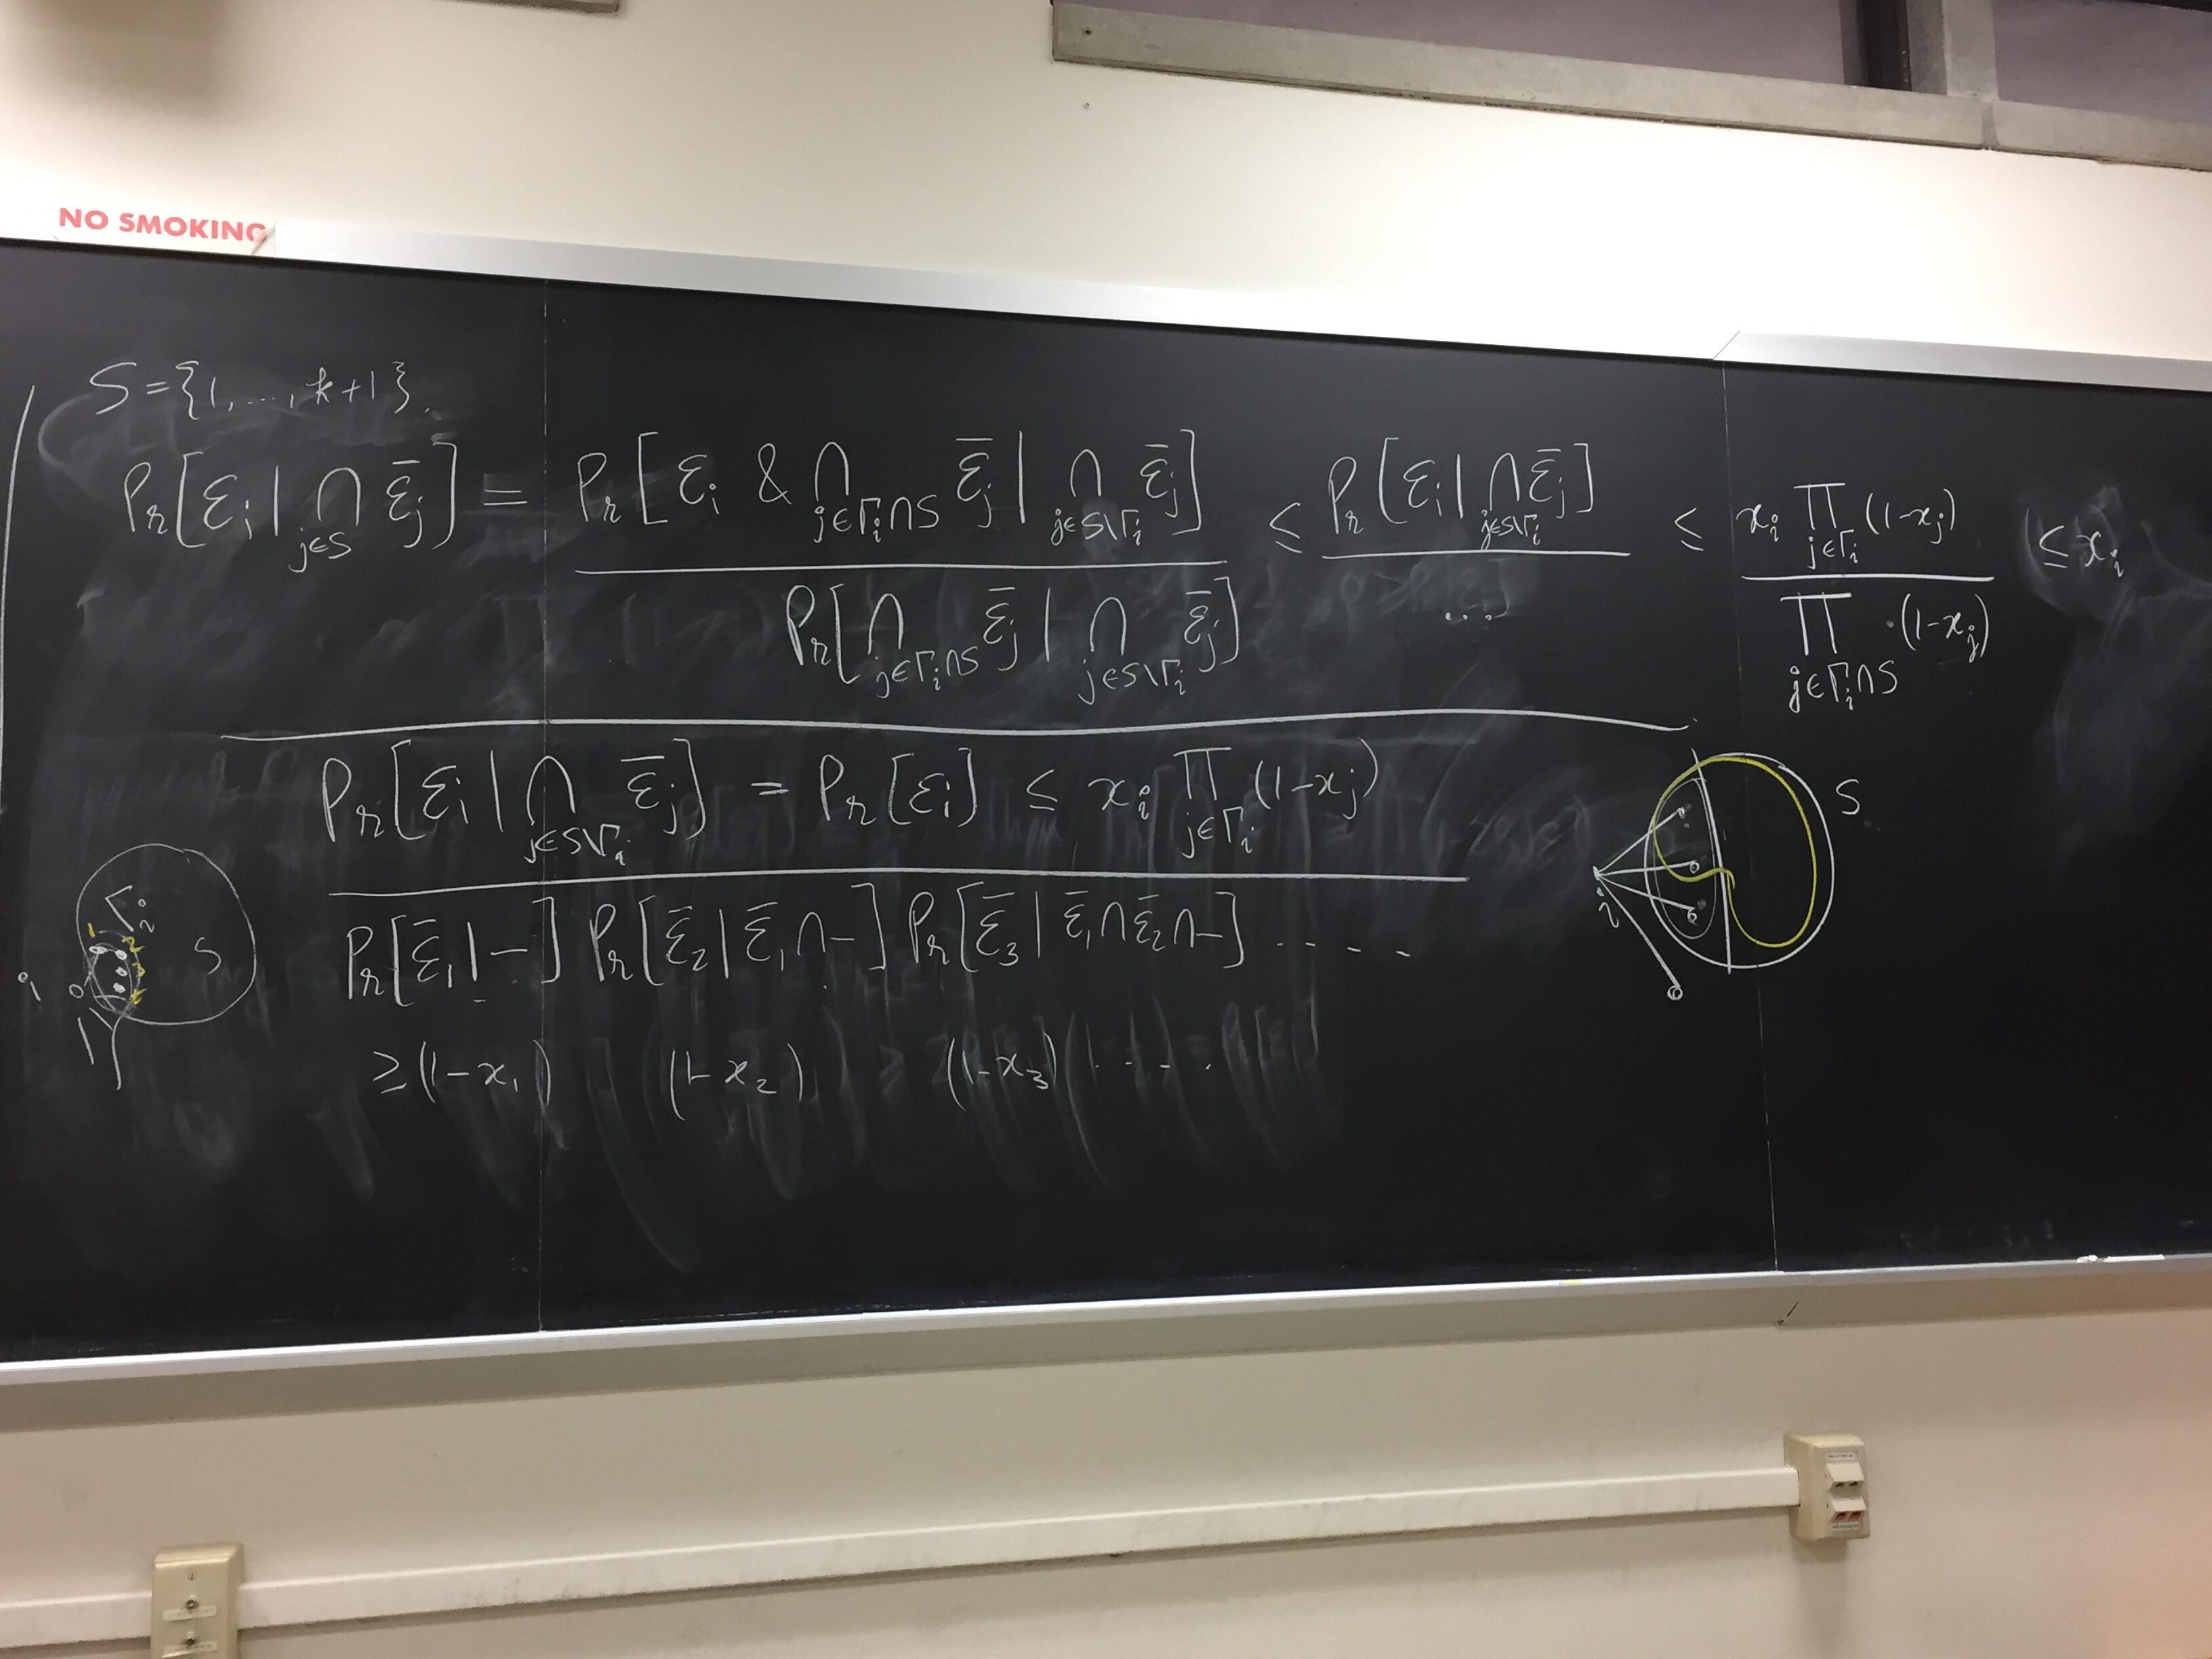 NO SMOKING
S = {1, ..., k+1}.
Pr[ε_i | ∩_{j∈S} ε̄_j] = Pr[ε_i & ∩_{j∈Γ_i∩S} ε̄_j | ∩_{j∈S\Γ_i} ε̄_j] / Pr[∩_{j∈Γ_i∩S} ε̄_j | ∩_{j∈S\Γ_i} ε̄_j] ≤ Pr[ε_i | ∩_{j∈S\Γ_i} ε̄_j] / ... ≤ x_i ∏_{j∈Γ_i} (1-x_j) / ∏_{j∈Γ_i∩S} (1-x_j) ≤ x_i
Pr[ε_i | ∩_{j∈S\Γ_i} ε̄_j] = Pr[ε_i] ≤ x_i ∏_{j∈Γ_i} (1-x_j)
Pr[ε̄_1 | -] Pr[ε̄_2 | ε̄_1 ∩ -] Pr[ε̄_3 | ε̄_1 ∩ ε̄_2 ∩ -] ....
≥ (1-x_1) (1-x_2) (1-x_3) ....
Γ_i
S
i
S
i